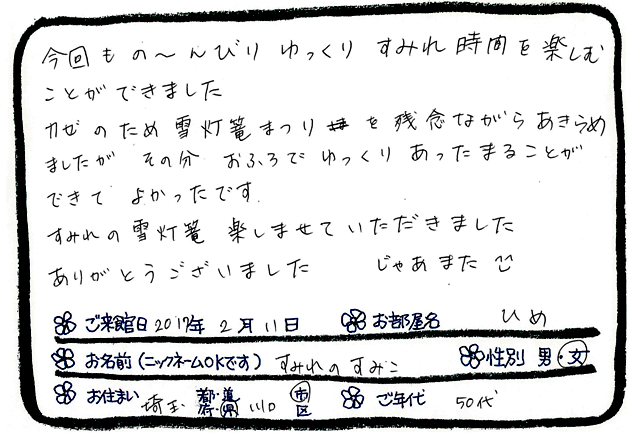 今回ものーんびりゆっくりすみれ時間を楽しむ
ことができました
カゼのため雪灯篭まつりを残念ながらあきらめ
ましたが その分 おふろでゆっくりあったまることが
できて よかったです
すみれの雪灯篭 楽しませていただきました
ありがとうございました じゃあまた
ご来館日 2017年 2月 11日 お部屋名 ひめ
お名前(ニックネームOKです) すみれのすみこ 性別 男・女
お住まい 埼玉 都・道・府・県 川口 市 区 ご年代 50代